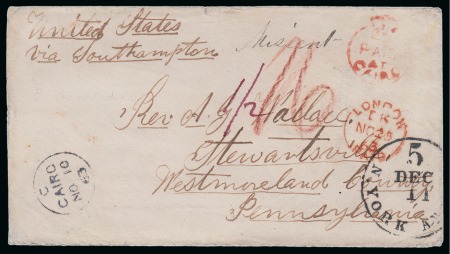 United States
via Southampton
Missent
PAID
1/2
Rev. A. G. Wallace,
Stewartsville
Westmoreland County
Pennsylvania
LONDON
NO 25
63
PAID
CAIRO
C
NO 10
63
5
DEC
11
N. YORK